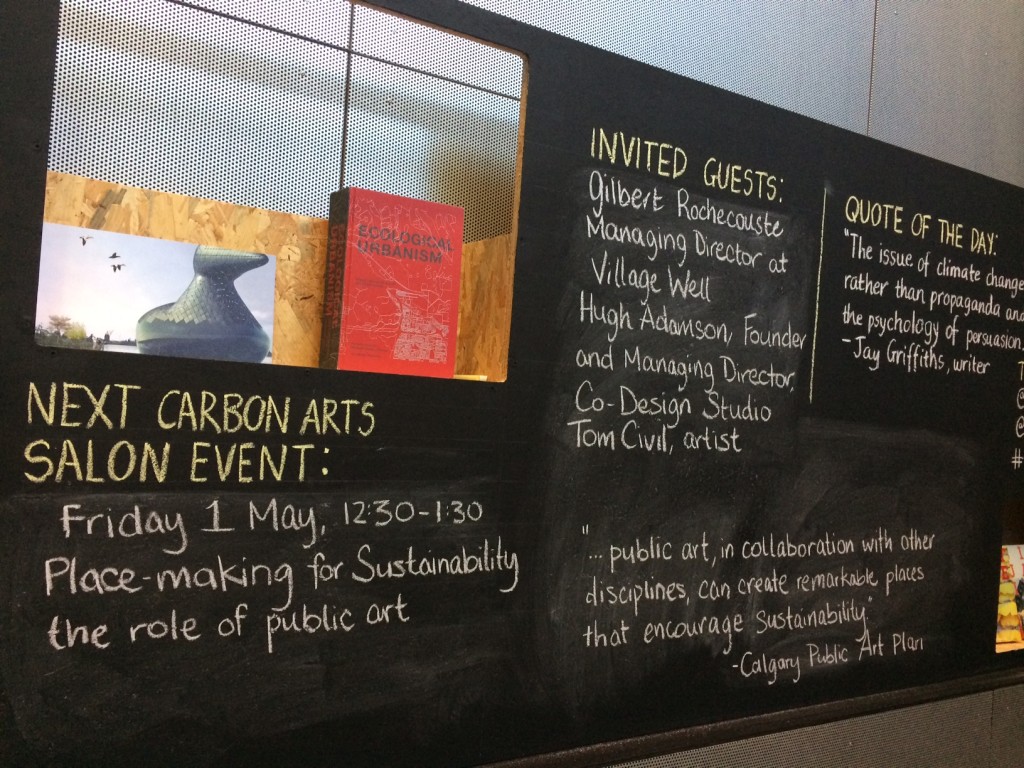 ECOLOGICAL
URBANISM
NEXT CARBON ARTS
SALON EVENT:
Friday 1 May, 12:30-1:30
Place-making for Sustainability
the role of public art
INVITED GUESTS:
Gilbert Rochecouste
Managing Director at
Village Well
Hugh Adamson, Founder
and Managing Director,
Co-Design Studio
Tom Civil, artist
"... public art, in collaboration with other
disciplines, can create remarkable places
that encourage sustainability."
-Calgary Public Art Plan
QUOTE OF THE DAY:
"The issue of climate change
rather than propaganda and
the psychology of persuasion
-Jay Griffiths, writer
T
@
@
#